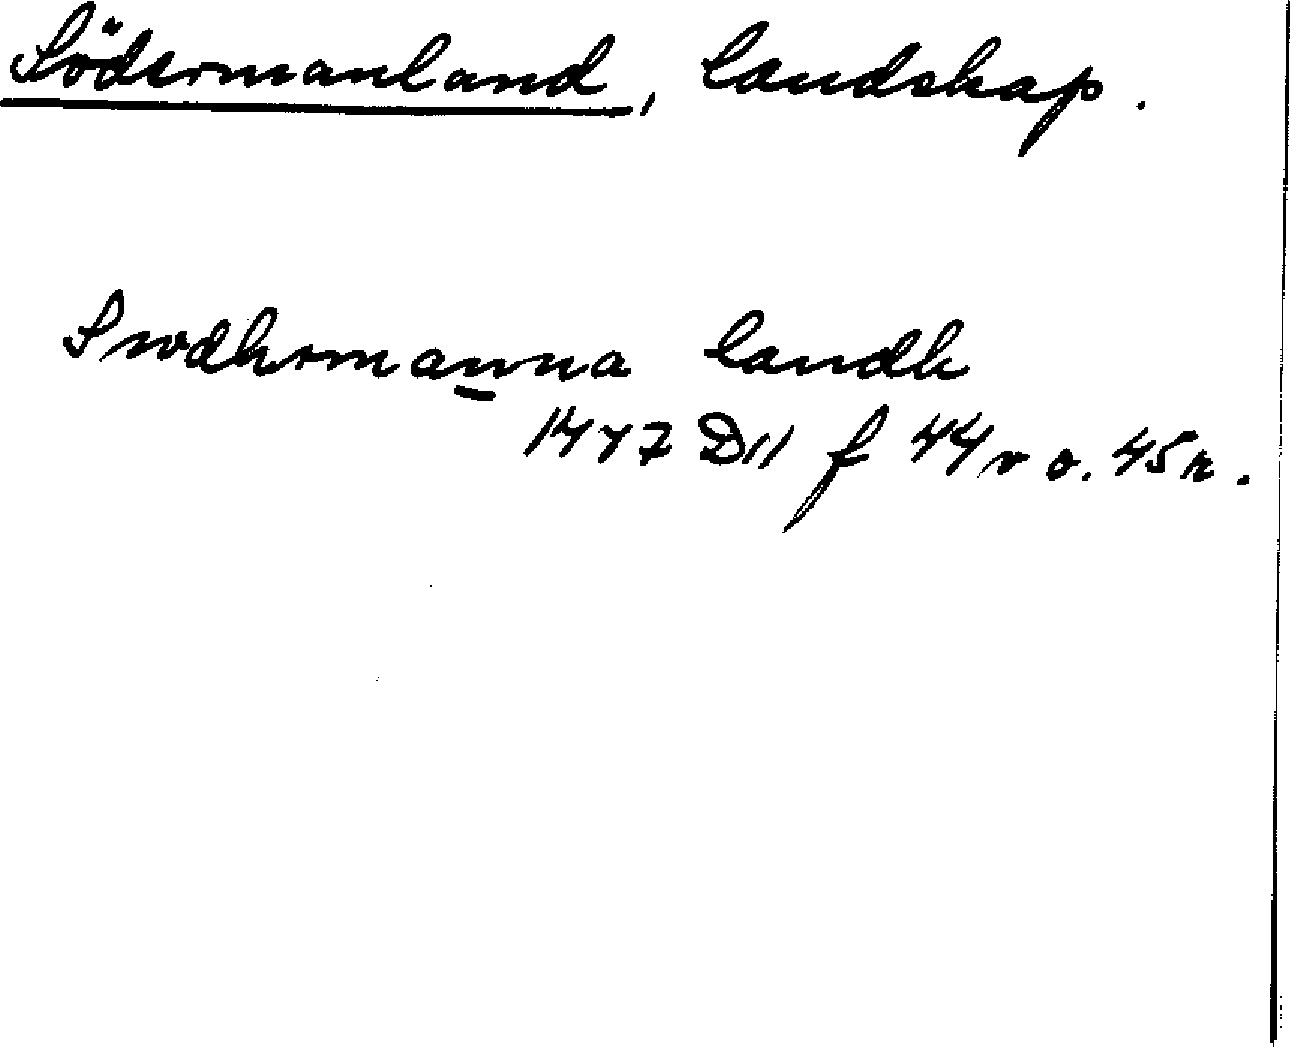 Södermanland, landskap.
Swdhrmanna landh
1447 D11 f 44v o. 45r.